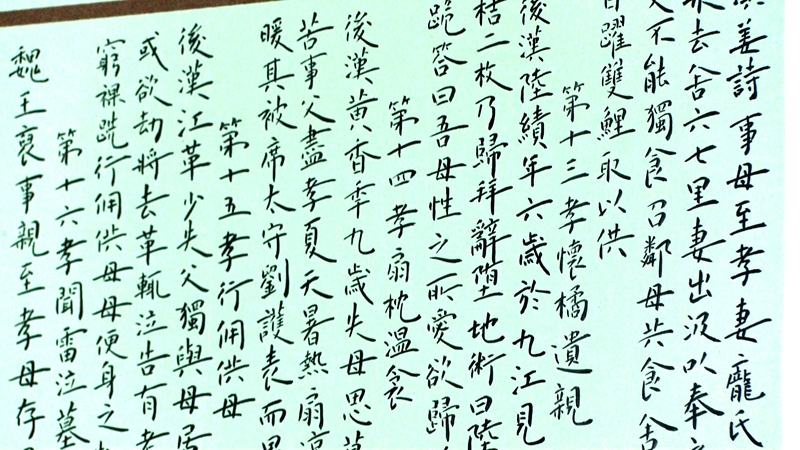 姜詩事母至孝妻龐氏
水去舍六七里妻出汲以奉
又不能獨食召鄰母共食舍
日躍雙鯉取以供
第十三孝懷橘遺親
後漢陸績年六歲於九江見
桔二枚乃歸拜辭墮地術曰陸
跪答曰吾母性之所愛欲歸
第十四孝扇枕溫衾
後漢黃香年九歲失母思慕
苦事父盡孝夏天暑熱扇涼
暖其被席太守劉護表而異
第十五孝行佣供母
後漢江革少失父獨與母居
或欲劫將去革輒泣告有老
窮裸跣行佣供母母便身之
第十六孝聞雷泣墓
魏王裒事親至孝母存